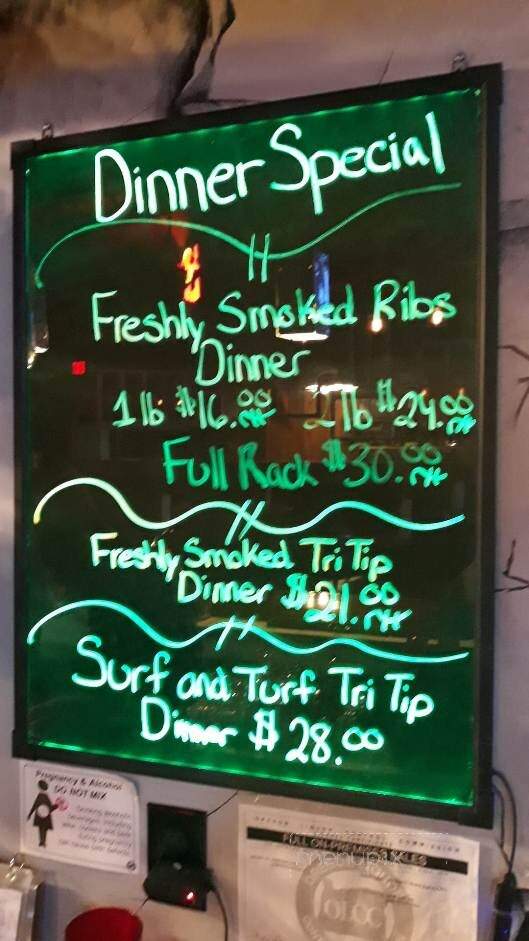 Dinner Special
Freshly Smoked Ribs
Dinner
1 lb $16.00 2 lb $24.00
Full Rack $30.00
Freshly Smoked Tri Tip
Dinner $21.00
Surf and Turf Tri Tip
Dinner $28.00
Pregnancy & Alcohol
DO NOT MIX
menupix
OLCC